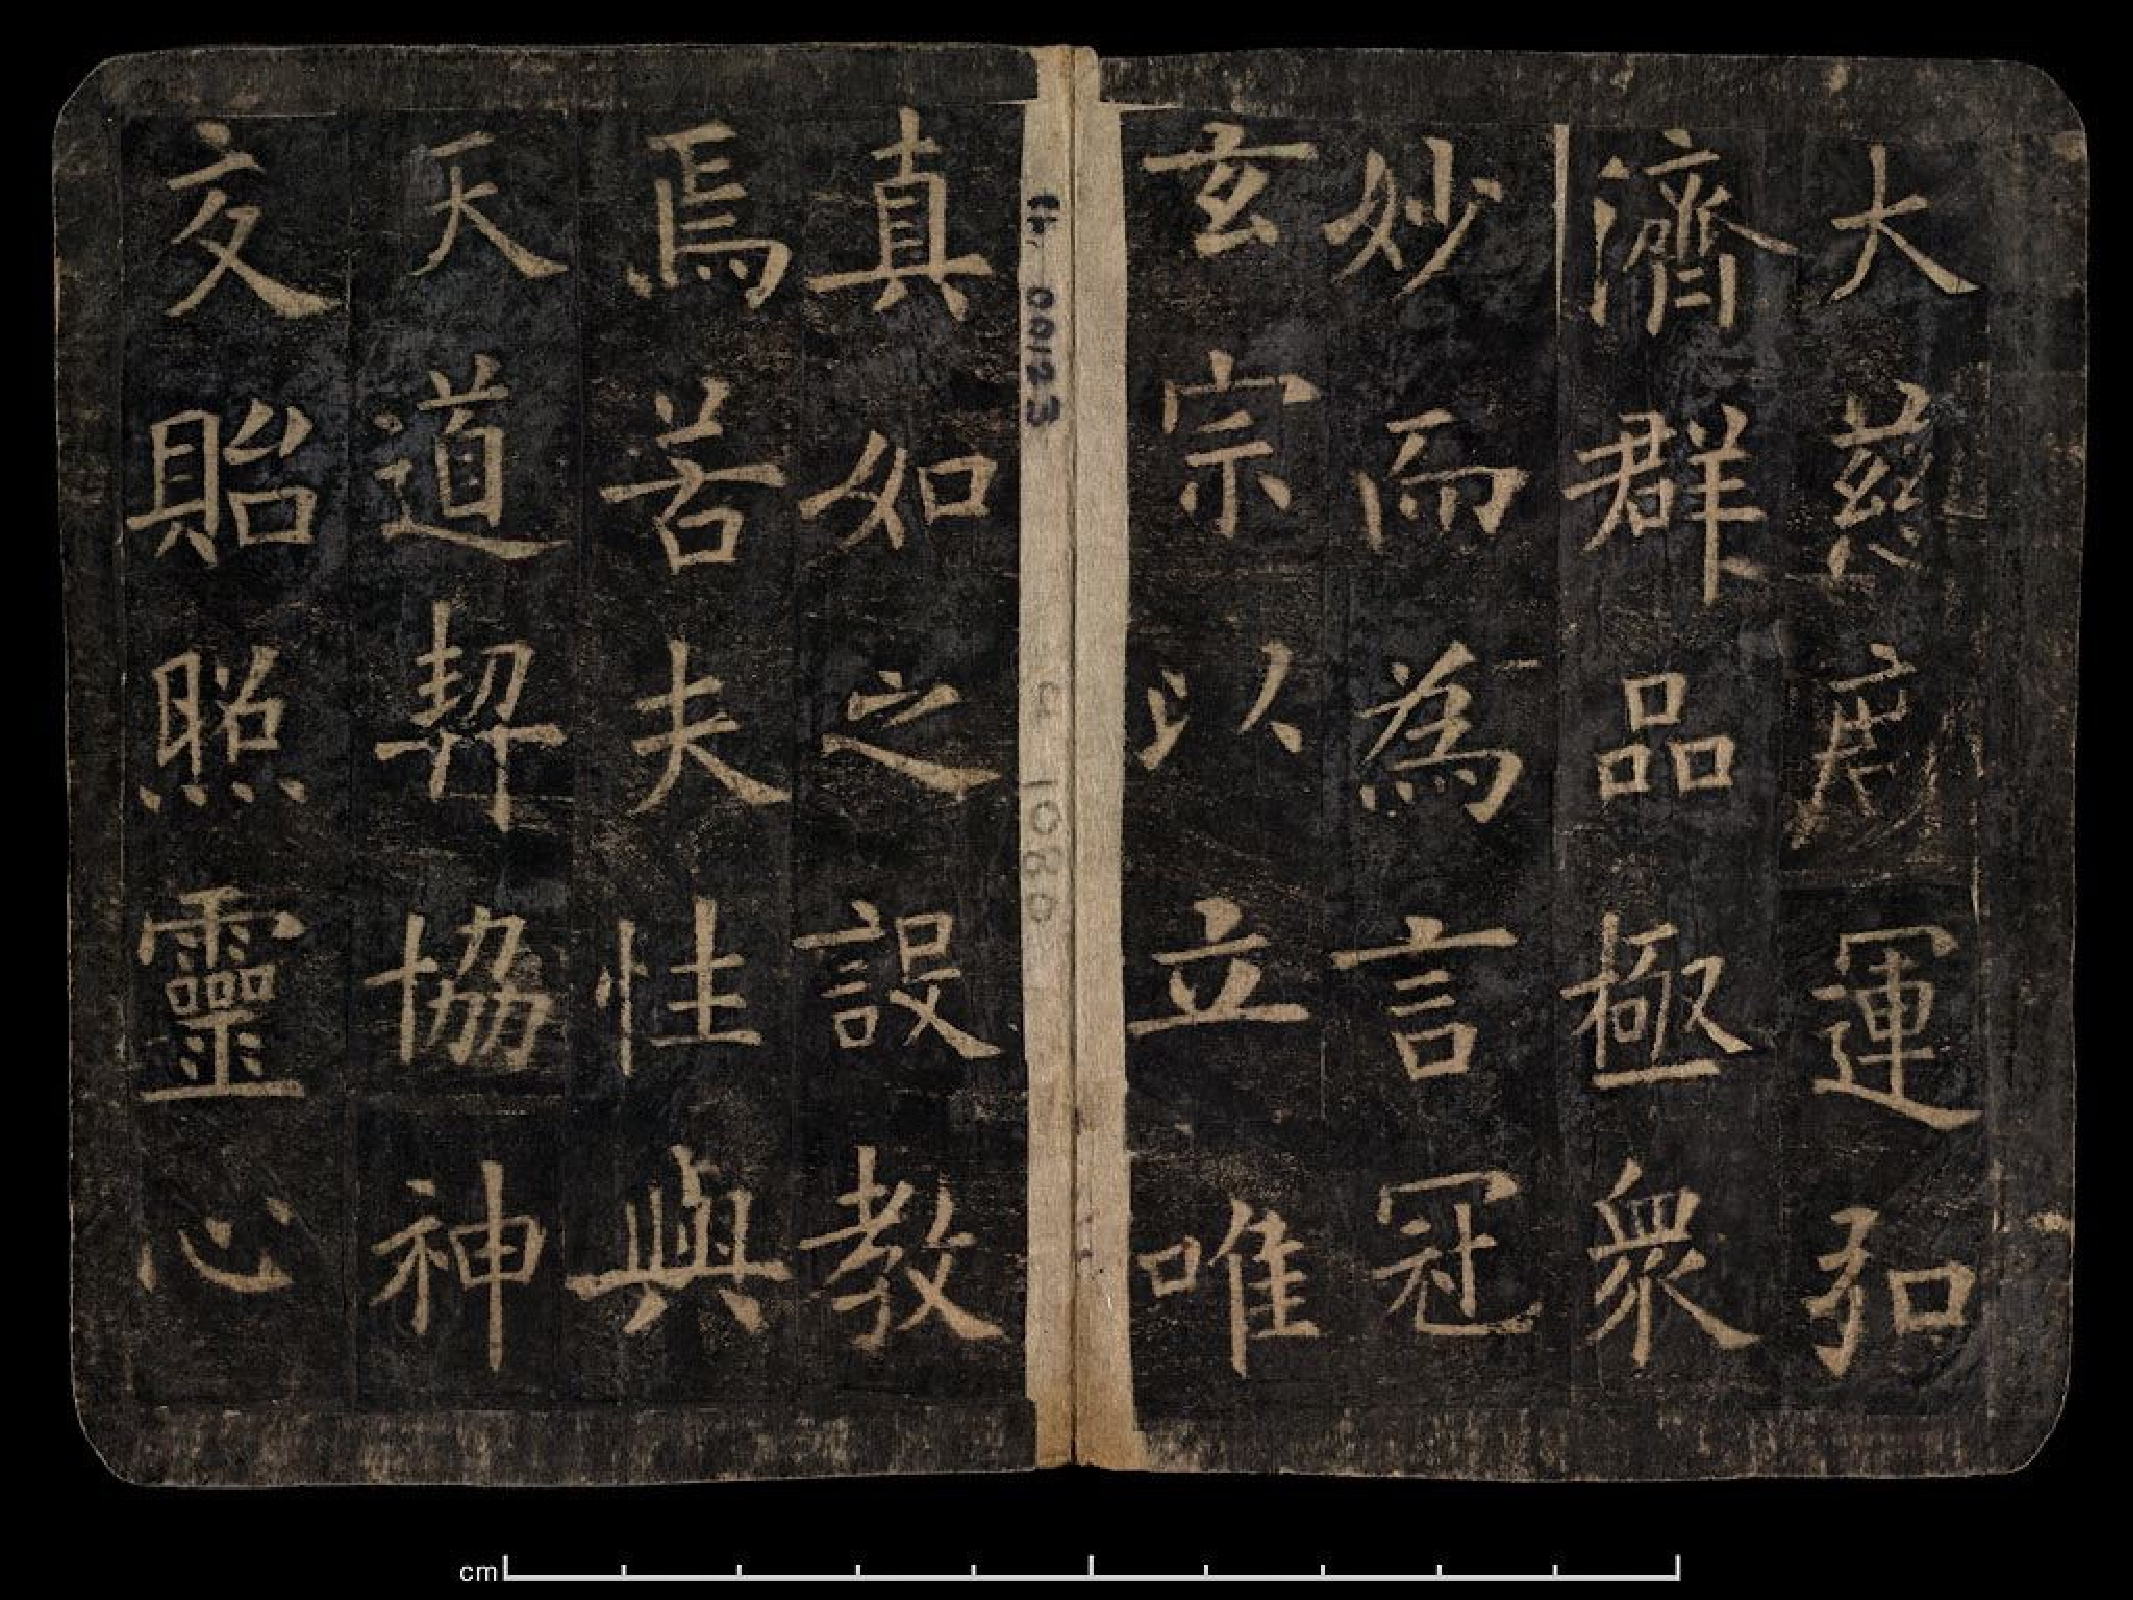 大慈運弘
濟群品極衆
妙而為言冠
玄宗以立唯
真如之設教
焉若夫性與
天道契協神
交貽照靈心
00123
1080
cm